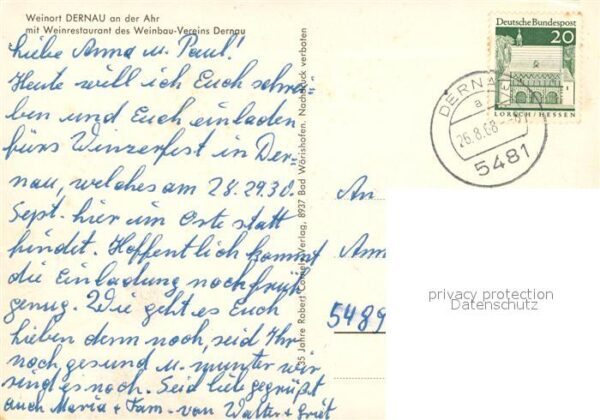 Weinort DERNAU an der Ahr
mit Weinrestaurant des Weinbau-Vereins Dernau
Liebe Anna u. Paul!
Heute will ich Euch schrei-
ben und Euch einladen
fürs Winzerfest in Der-
nau, welches am 28.29.30.
Sept. hier im Orte statt
findet. Hoffentlich kommt
die Einladung noch früh
genug. Wie geht es Euch
lieben denn noch, seid Ihr
noch gesund u. munter wir
sind es noch. Seid liebe gegrüßt
auch Maria + Fam. von Walter + Gret
35 Jahre Robert Verlag, 8937 Bad Wörishofen. Nachdruck verboten
Deutsche Bundespost
20
LORSCH/HESSEN
DERNAU
a
26.8.68
5481
An
Ann
5489
privacy protection
Datenschutz